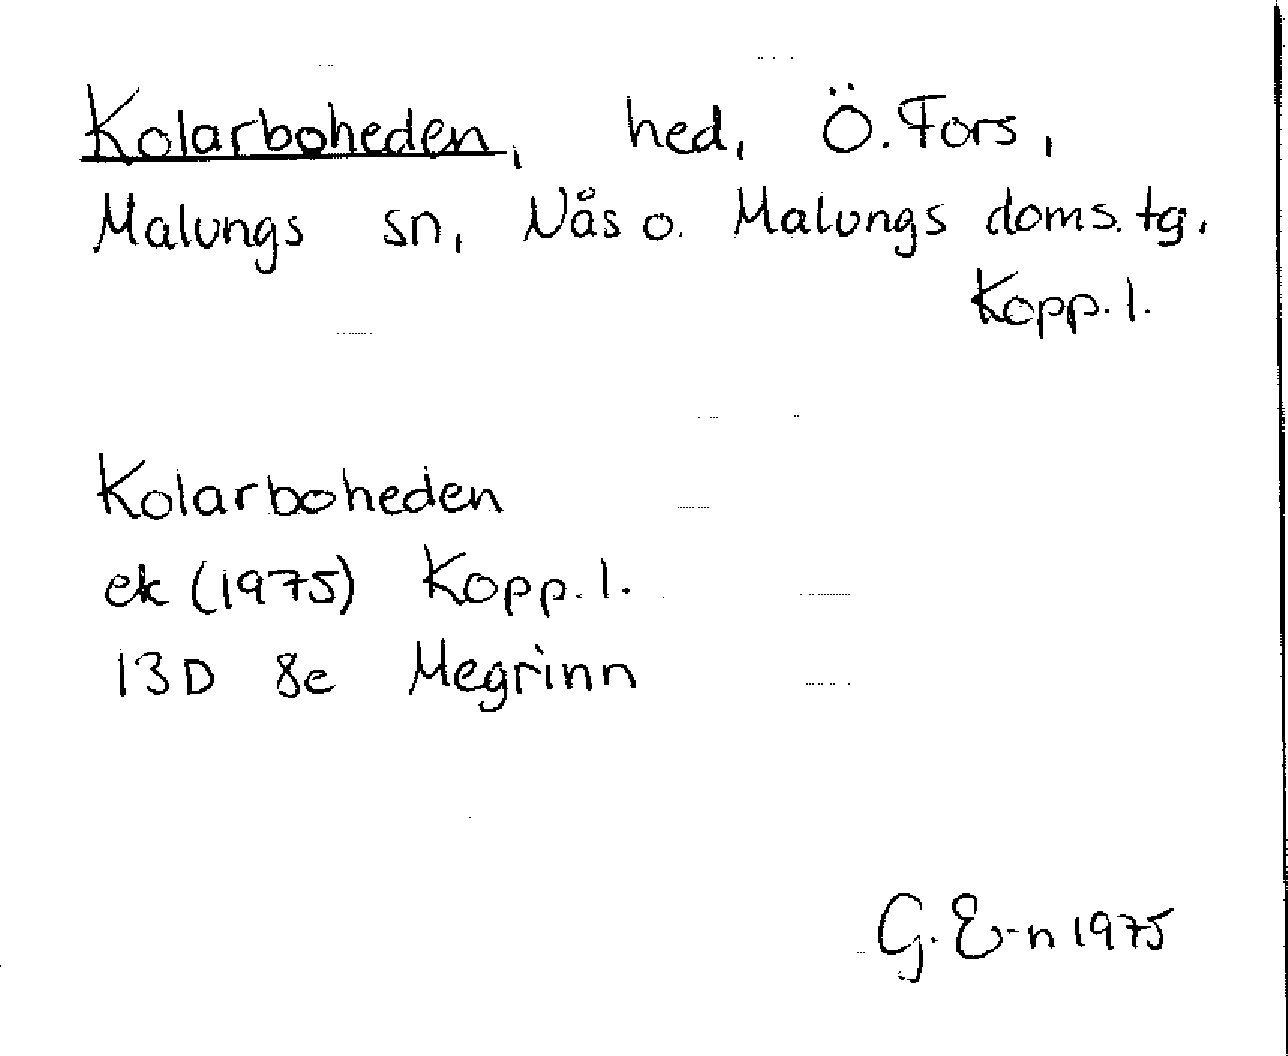 Kolarboheden, hed, Ö. Fors,
Malungs sn, Nås o. Malungs doms. tg.
Kopp. l.
Kolarboheden
ek (1975) Kopp. l.
13D 8e Megrinn
G. E-n 1975